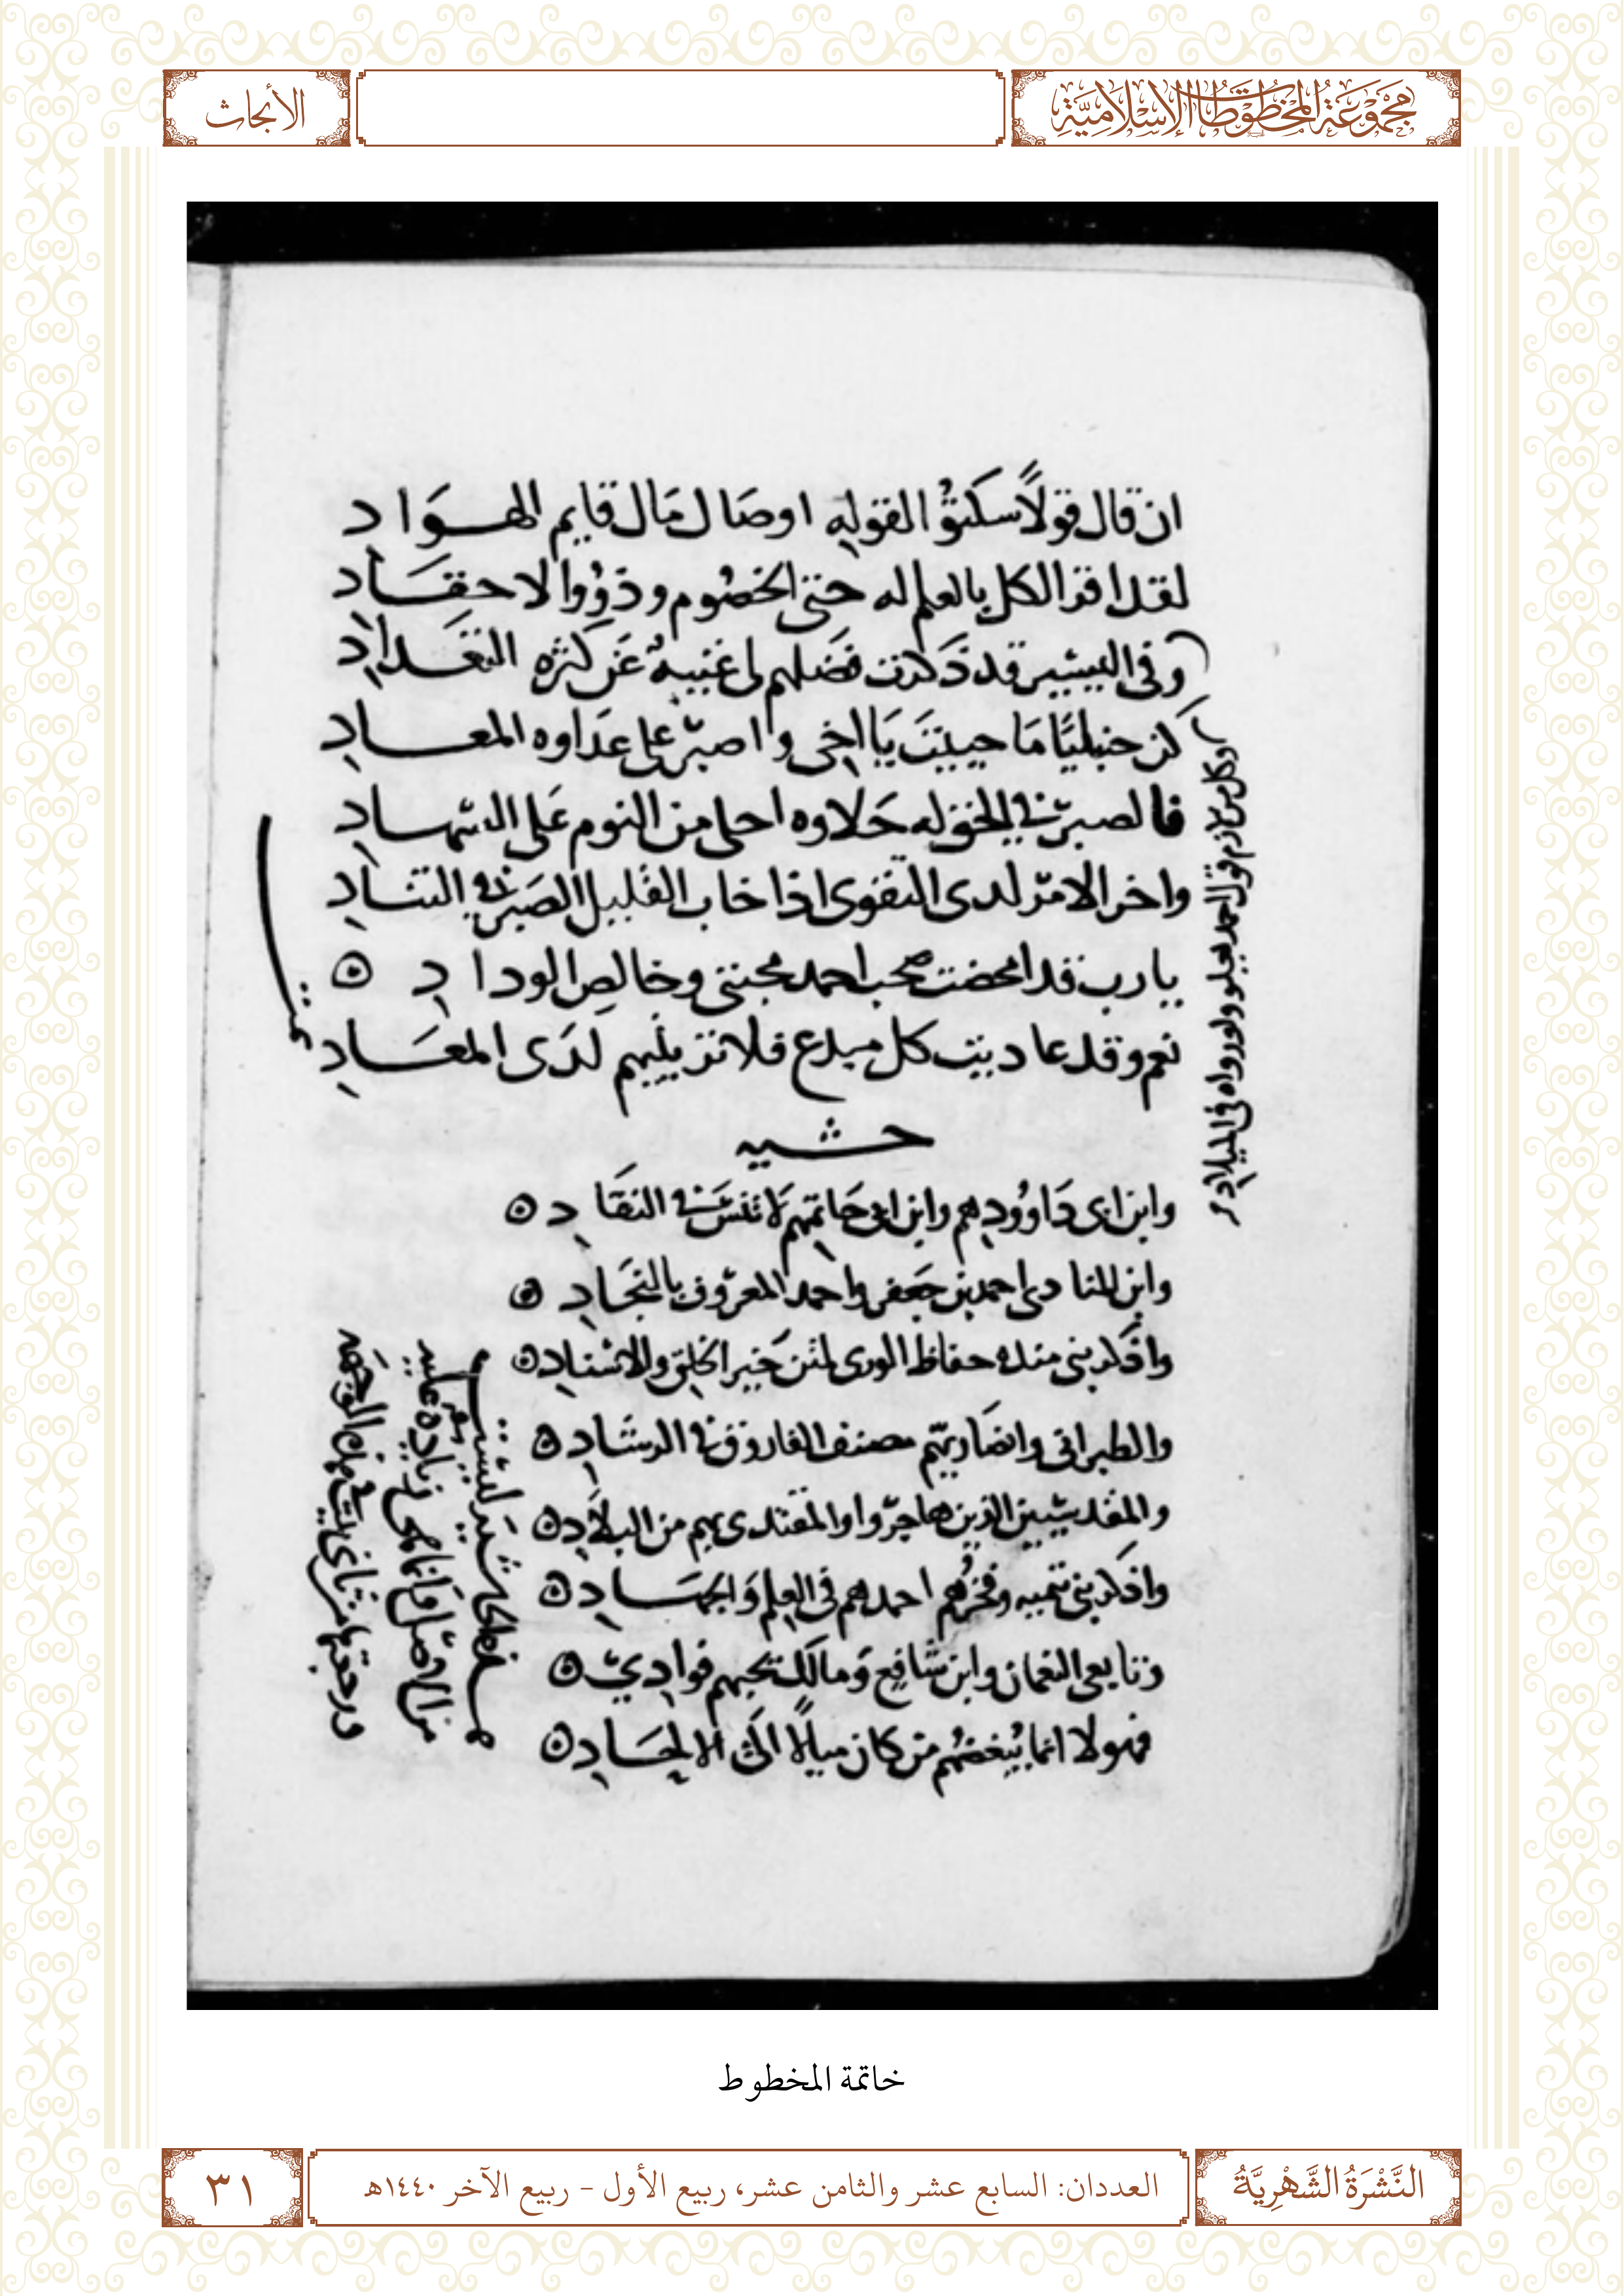 مَجْمُوعَةُ المَخْطُوطَاتِ الإِسْلَامِيَّةِ
الأبحاث
ان قال قولًا سكتوا لقوله او صَال مَال قايم الهوَاد
لقد اقر الكل بالعلم له حتى الخصُوم وذوُوا الاحقَاد
وفى البيتين قد ذَكرت فضلهم لى غنيةٌ عَن كثره التعداد
كن حنبليًا مَا حييتَ يَا اخى واصبر على عدَاوه المعاد
فالصبر فى الخوله حَلاوه احلى من النوم عَلى السهاد
واخر الامر لدى التقوى اذا خاب القليل الصَبر فى التناد
يارب قد امحضت صحب احمد محبتى وخالص الوداد
نعم وقد عاديت كل مبدع فلا تزيلهم لدَى المعَاد
وكل من لازم قول احمد يعلو ولو رواه فى الميلاد
حشيه
وابن ابى دَاوُودهم وابن ابى حَاتمهم لَا تنسَ فى النقَاد
وابن المنادى احمد بن جَعفر واحمد المعروف بالنجَاد
واذكر بنى منده حفاظ الورى لمتن خَير الخلق والاسناد
والطبرانى وانصَاريهم مصنف الفاروق فى الرشاد
والمقدسيين الذين هاجروا والمقتدى بهم من البلَاد
واذكر بنى تيميه وفخرُهم احمدهم فى العلم وَالجهَاد
وتابعى النعمان وابن شافع وَمالك تحبهم فوادي
فهولا انما يُبغضُهم من كان ميالًا الَى الالحَاد
خاتمة المخطوط
النَّشْرَةُ الشَّهْرِيَّةُ
العددان: السابع عشر والثامن عشر، ربيع الأول - ربيع الآخر ١٤٤٠هـ
٣١